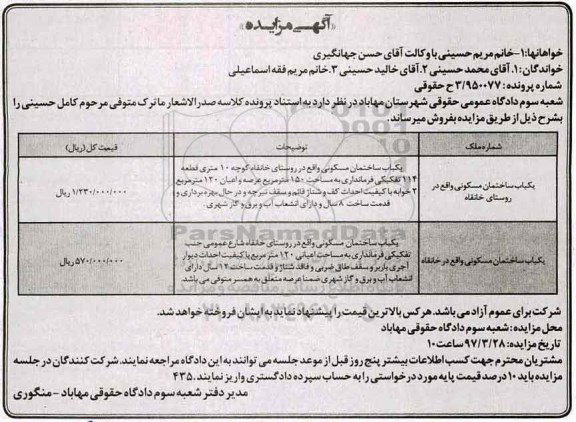 «آگهی مزایده»
خواهانها: ۱-خانم مریم حسینی با وکالت آقای حسن جهانگیری
خواندگان: ۱. آقای محمد حسینی ۲. آقای خالید حسینی ۳. خانم مریم فقه اسماعیلی
شماره پرونده: ۳/۹۵۰۰۷۷ ح حقوقی
شعبه سوم دادگاه عمومی حقوقی شهرستان مهاباد در نظر دارد به استناد پرونده کلاسه صدرالاشعار ماترک متوفی مرحوم کامل حسینی را
بشرح ذیل از طریق مزایده بفروش میرساند.
شماره ملک توضیحات قیمت کل (ریال)
یکباب ساختمان مسکونی واقع در روستای خانقاه
یکباب ساختمان مسکونی واقع در روستای خانقاه کوچه ۱۰ متری قطعه
۱۱۴ تفکیکی فرمانداری به مساحت ۱۵۰ مترمربع عرصه و اعیان ۱۲۰ مترمربع
۲ خوابه با کیفیت احداث کف و شناژ قائم و سقف تیرچه و در حال بهره برداری و
قدمت ساخت ۸ سال و دارای انشعاب آب و برق و گاز شهری.
۱/۲۳۰/۰۰۰/۰۰۰ ریال
یکباب ساختمان مسکونی واقع در خانقاه
یکباب ساختمان مسکونی واقع در روستای خانقاه شارع عمومی جنب
تفکیکی فرمانداری به مساحت اعیانی ۱۲۰ متر مربع با کیفیت احداث دیوار
آجری باربر و سقف طاق ضربی و فاقد شناژ و قدمت ساخت ۱۲ سال دارای
انشعاب آب و برق و گاز شهری ضمنا عرصه متعلق به همسر متوفی می باشد.
۵۷۰/۰۰۰/۰۰۰ ریال
شرکت برای عموم آزاد می باشد. هر کس بالاترین قیمت را پیشنهاد نماید به ایشان فروخته خواهد شد.
محل مزایده: شعبه سوم دادگاه حقوقی مهاباد
تاریخ مزایده: ۹۷/۳/۲۸ ساعت ۱۰
مشتریان محترم جهت کسب اطلاعات بیشتر پنج روز قبل از موعد جلسه می توانند به این دادگاه مراجعه نمایند. شرکت کنندگان در جلسه
مزایده باید ۱۰ درصد قیمت پایه مورد درخواستی را به حساب سپرده دادگستری واریز نمایند. ۴۳۵
مدیر دفتر شعبه سوم دادگاه حقوقی مهاباد - منگوری
ParsNamadData